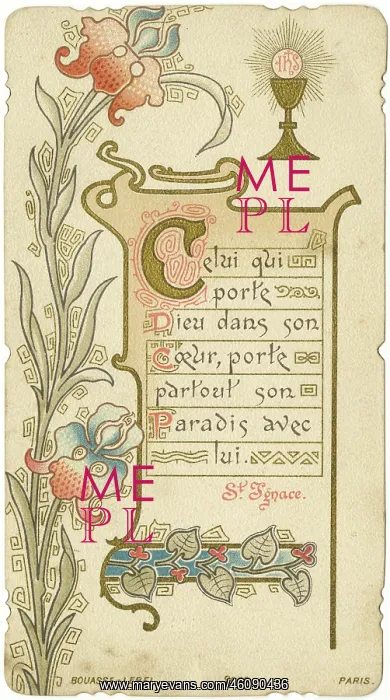 IHS
ME
PL
Celui qui
porte
Dieu dans son
Cœur, porte
partout son
Paradis avec
lui.
St Ignace.
ME
PL
BOUASSE-LEBEL
PARIS.
www.maryevans.com/46090436